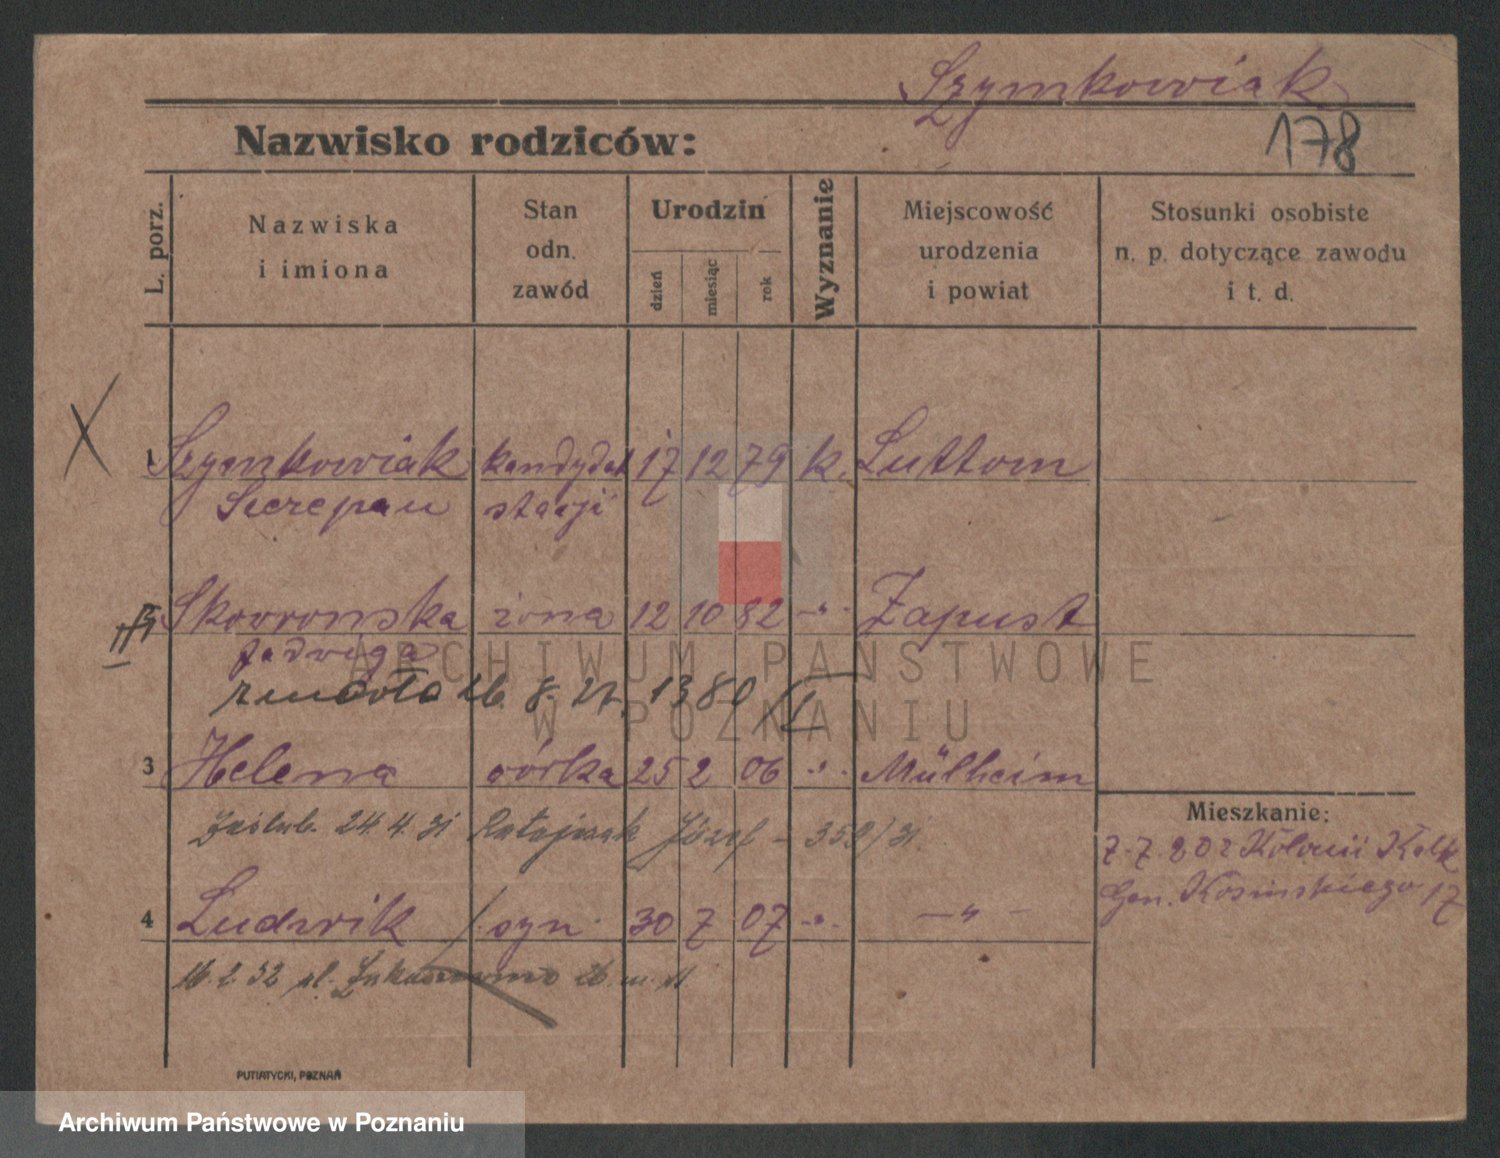 Szymkowiak
Nazwisko rodziców:
178
L. porz.
Nazwiska
i imiona
Stan
odn.
zawód
Urodzin
dzień
miesiąc
rok
Wyznanie
Miejscowość
urodzenia
i powiat
Stosunki osobiste
n. p. dotyczące zawodu
i t. d.
1 Szymkowiak kandydat 17 12 79 k. Luttom
Szczepan stacji
Skowronska żona 12 10 82 -"- Zapust
Jadwiga
ARCHIWUM PAŃSTWOWE
W POZNANIU
zmarła 26. 8. 27. 1380/II
3 Helena córka 25 2 06 -"- Mülheim
Mieszkanie:
Zaślub. 24. 4. 31 Ratajczak Józef - 359/31.
7. 7. 20 z Kolonii Kalk
Gen. Kosinskiego 17
4 Ludwik syn 30 7 07 -"- -"-
16. 2. 32 ul. 26 m. 11
PUTIATYCKI, POZNAŃ
Archiwum Państwowe w Poznaniu